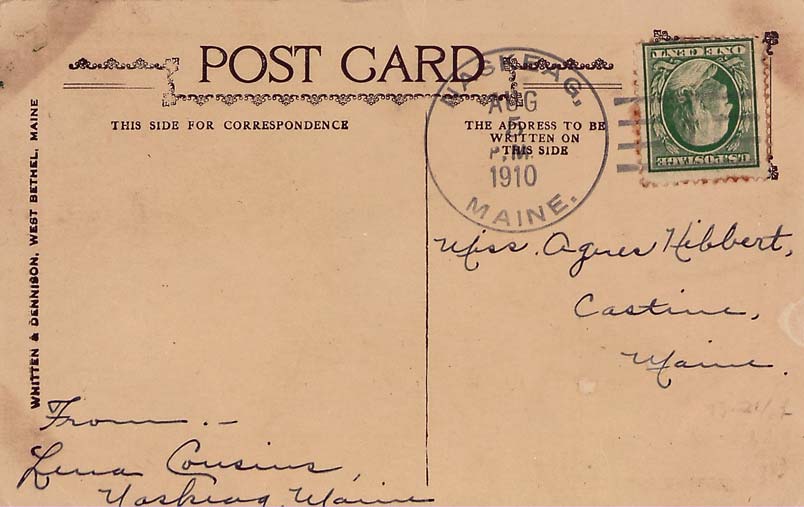 POST CARD
THIS SIDE FOR CORRESPONDENCE
THE ADDRESS TO BE
WRITTEN ON
THIS SIDE
NASKEAG,
AUG
5
P.M.
1910
MAINE.
ONE CENT
U.S. POSTAGE
WHITTEN & DENNISON, WEST BETHEL, MAINE
Miss. Agnes Hibbert,
Castine,
Maine.
From.-
Lena Cousins,
Naskeag, Maine